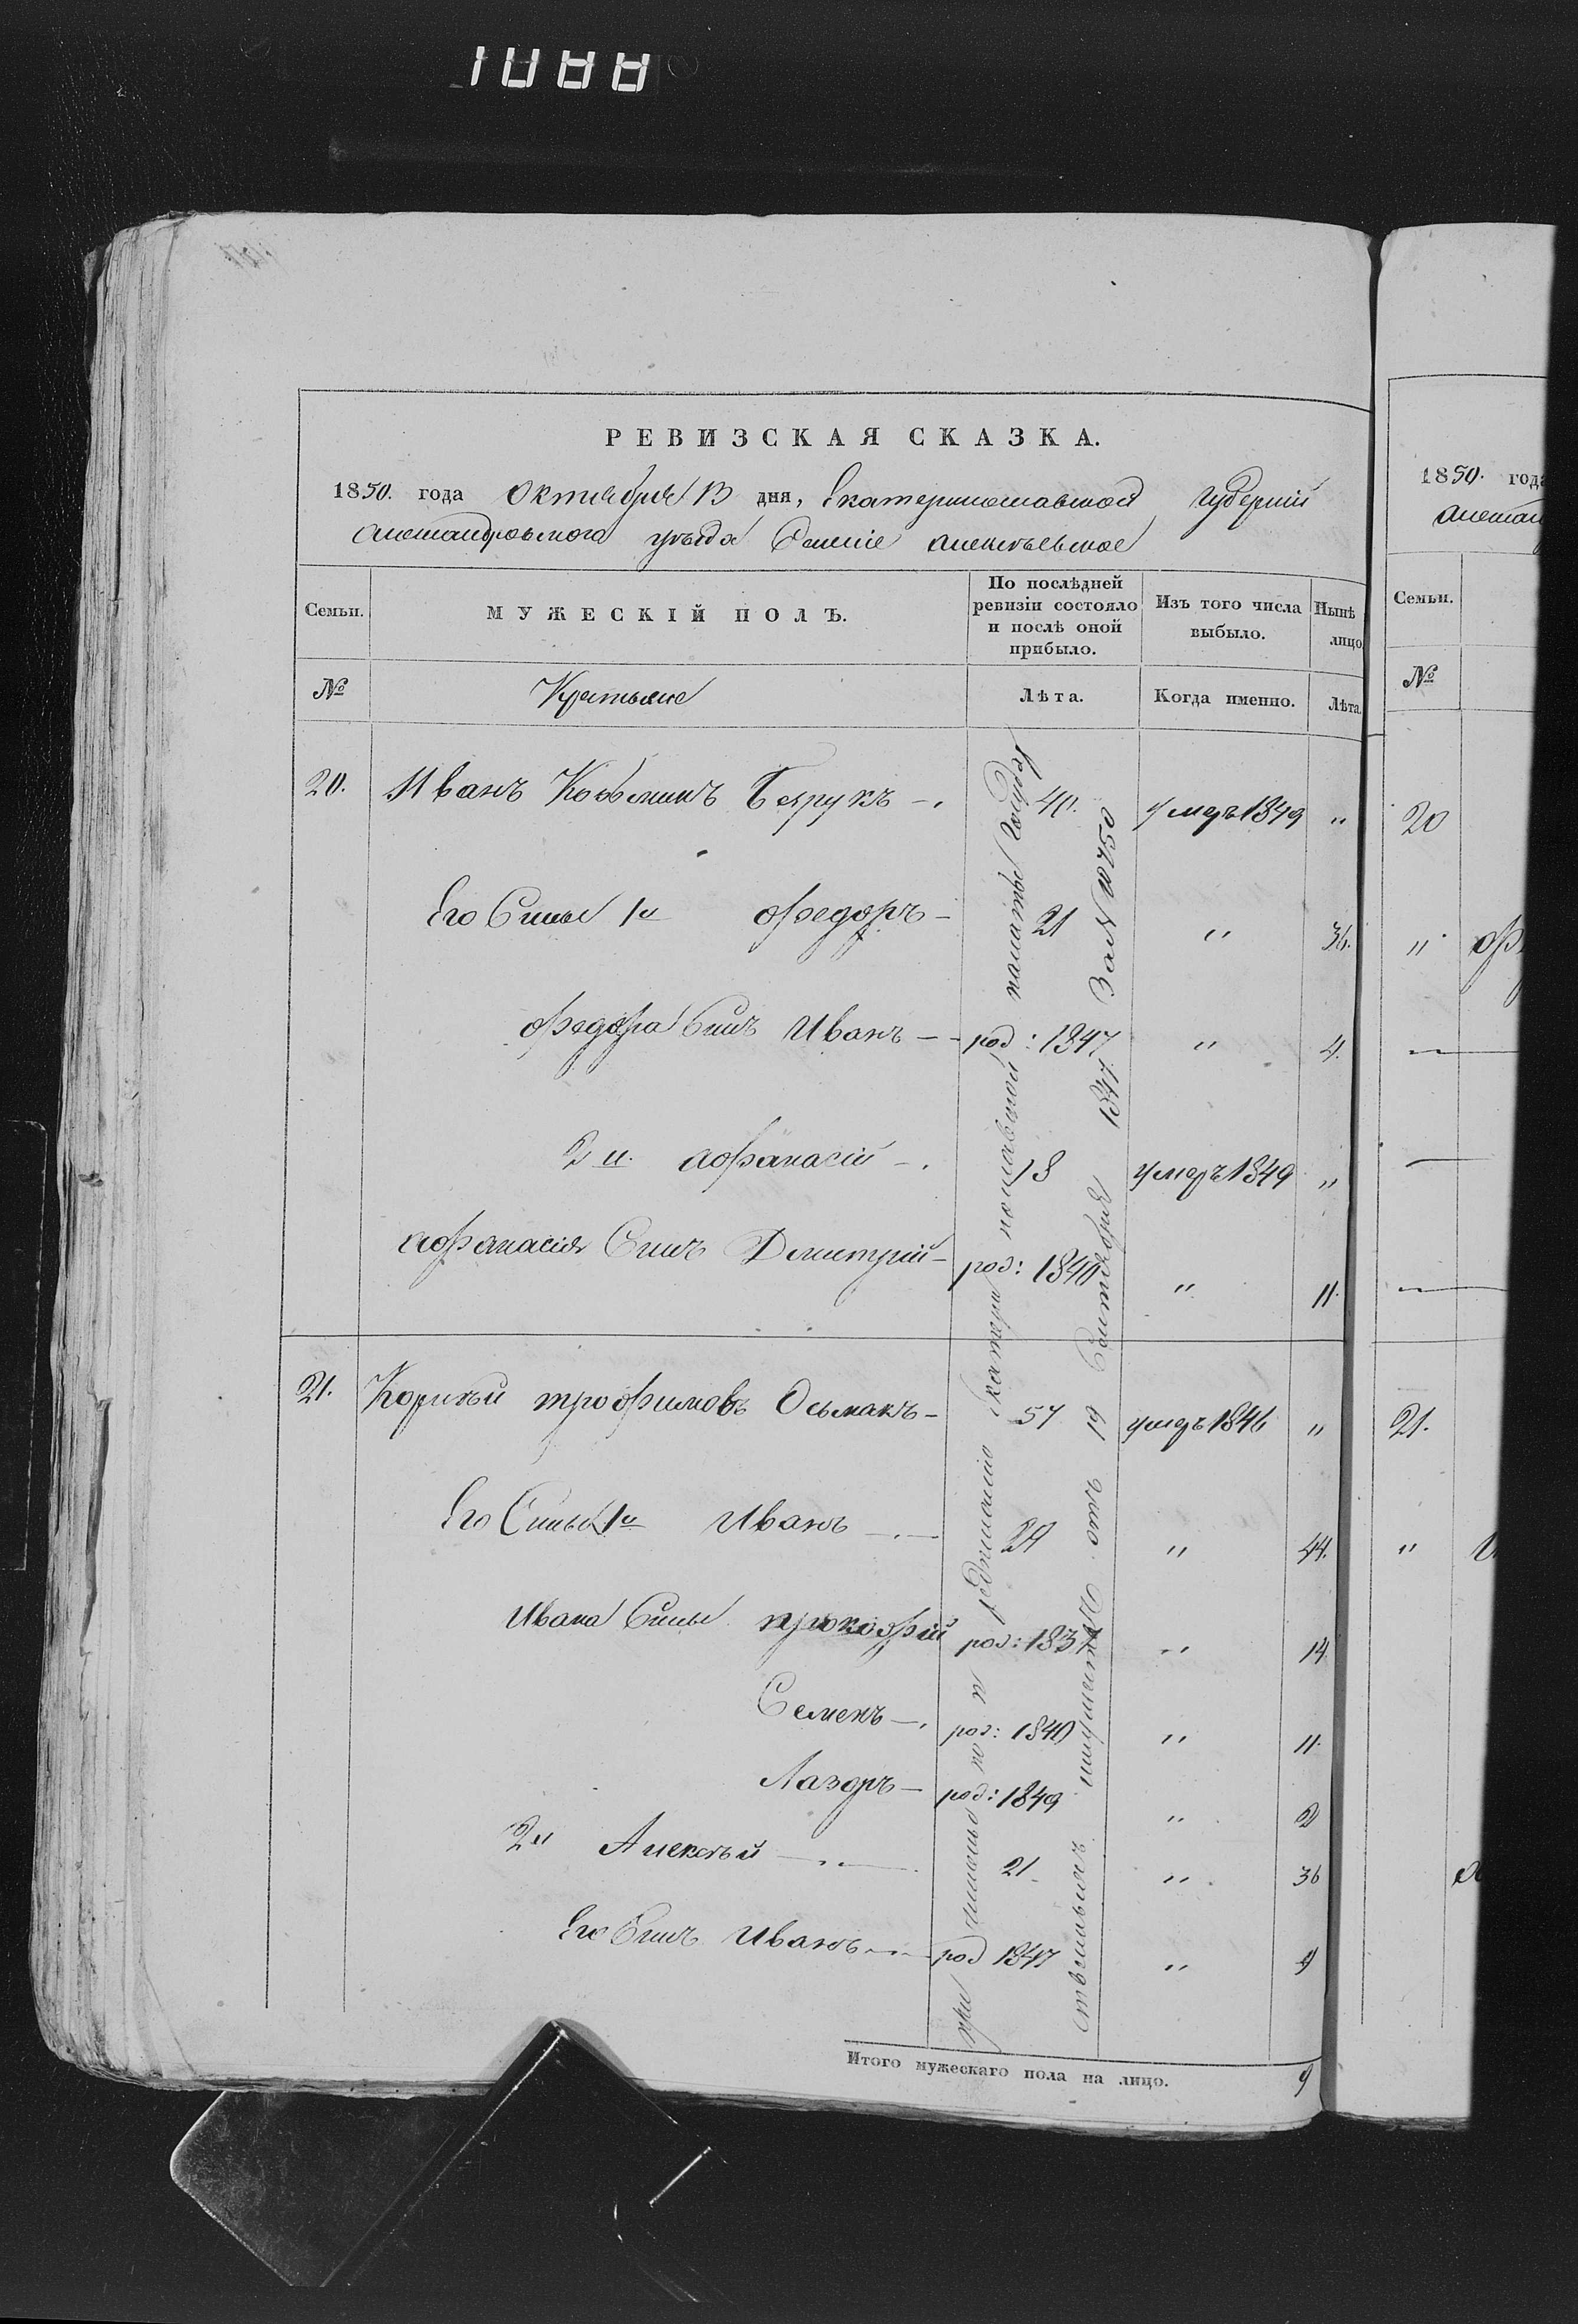 1088
РЕВИЗСКАЯ СКАЗКА.
1850. года Октября 13 дня, Екатеринославской губерніи
Александровского уѣзда Селеніе Алексѣевское
Семьи. МУЖЕСКІЙ ПОЛЪ. По послѣдней ревизіи состояло и послѣ оной прибыло. Изъ того числа выбыло. Нынѣ лицо
№ Крестьяне Лѣта. Когда именно. Лѣта.
20. Иванъ Козьминъ Бирукъ 40. умеръ 1849 "
Его Сыны 1й Федоръ 21 " 36.
Федора Сынъ Иванъ род: 1847 " 4.
2й. Афанасій 18 умеръ 1849 "
Афанасія Сынъ Дмитрій род: 1840 " 11.
21. Корнѣй Трофимовъ Осьмакъ 57 умеръ 1846 "
Его Сыны 1й Иванъ 29 " 44.
Ивана Сыны Прокофій род: 1837 " 14
Семенъ род: 1840 " 11.
Лазорь род: 1849 " 2
2й Алексѣй 21 " 36
Его Сынъ Иванъ род 1847 " 4
Итого мужескаго пола на лицо. 9
причислены по предписанію Екатеринославской палаты Государ
ственныхъ имуществъ отъ 19 Сентября 1847 За № 10750
1850. года
Семьи.
№
20
"
21.
"